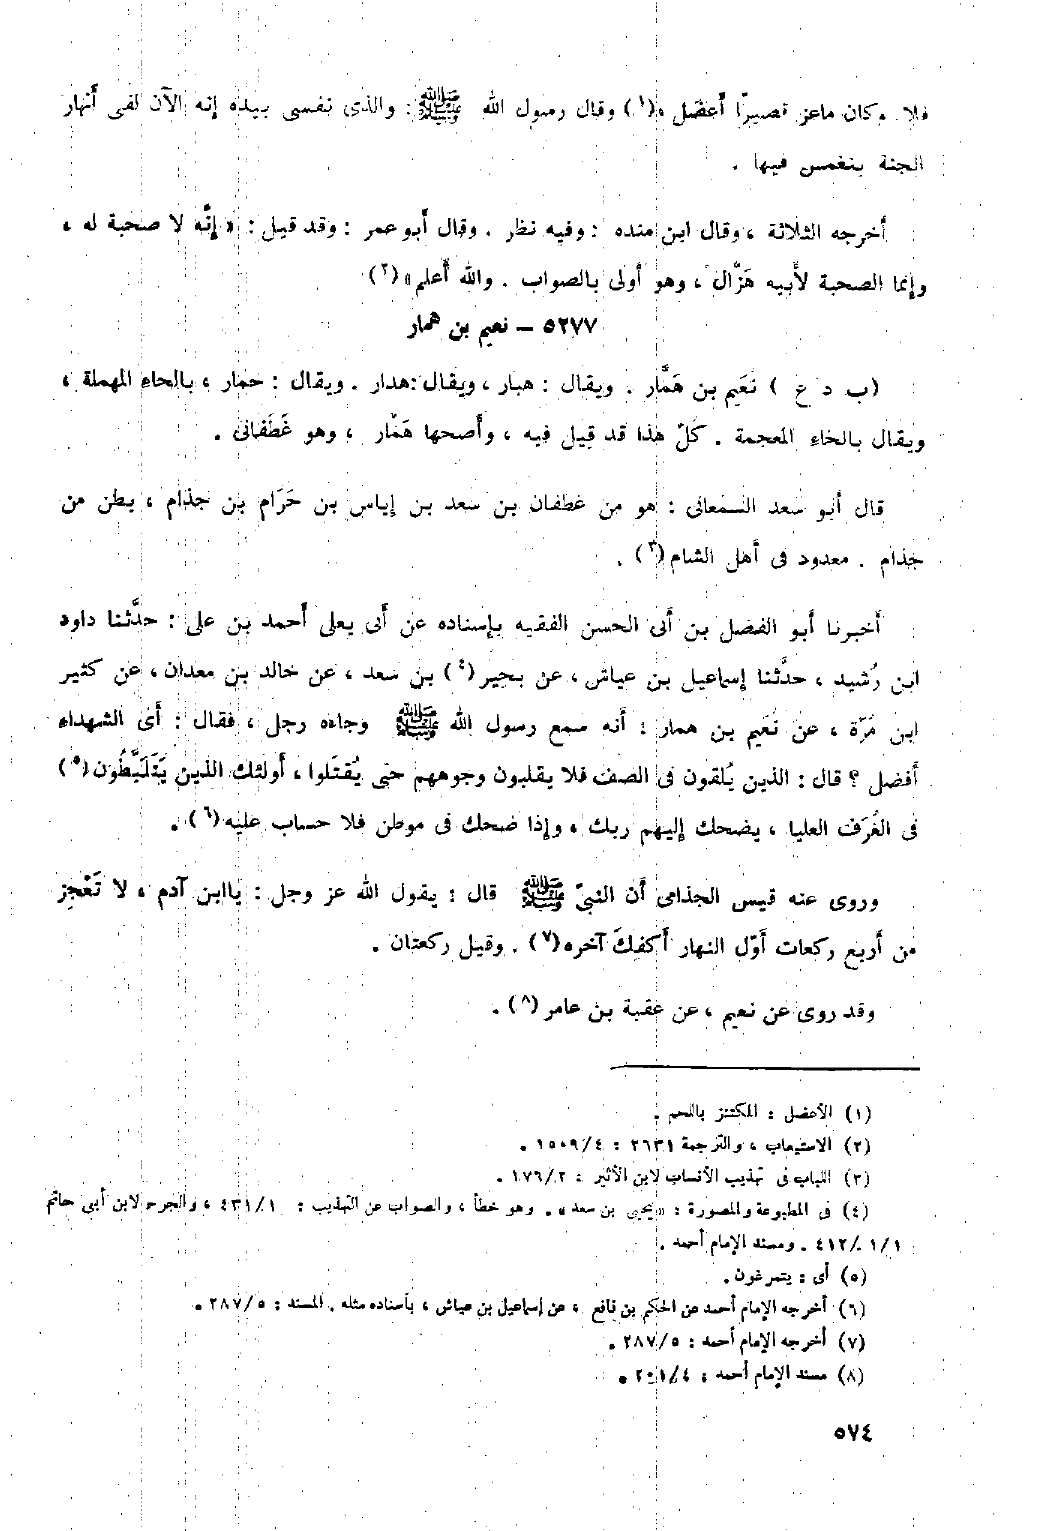 فلا. وكان ماعز قصيرًا أعضل »(١) وقال رسول الله ﷺ : والذى نفسى بيده إنه الآن لفى أنهار
الجنة ينغمس فيها .
أخرجه الثلاثة ، وقال ابن منده : وفيه نظر . وقال أبو عمر : وقد قيل : « إنَّه لا صحبة له ،
وإنما الصحبة لأبيه هَزَّال ، وهو أولى بالصواب . والله أعلم» (٢)
٥٢٧٧ – نعيم بن همار
(ب د ع ) نُعَيم بن هَمَّار . ويقال : هبار ، ويقال :هدار . ويقال : حمار ، بالحاء المهملة ،
ويقال بالخاء المعجمة . كلّ هذا قد قيل فيه ، وأصحها هَمَّار ، وهو غَطَفانى .
قال أبو سعد السمعانى : هو من غطفان بن سعد بن إياس بن حَرَام بن جذام ، بطن من
جذام . معدود فى أهل الشام (٣) .
أخبرنا أبو الفضل بن أبى الحسن الفقيه بإسناده عن أبى يعلى أحمد بن على : حدَّثنا داود
ابن رُشيد ، حدَّثنا إسماعيل بن عياش ، عن بحير(٤) بن سعد ، عن خالد بن معدان ، عن كثير
ابن مَرّة ، عن نُعَيم بن همار : أنه سمع رسول الله ﷺ وجاءه رجل ، فقال : أى الشهداء
أفضل ؟ قال : الذين يُلقون فى الصف فلا يقلبون وجوههم حتى يُقتَلوا ، أولئك الذين يَتَلَبَّطُون(٥)
فى الغُرَف العليا ، يضحك إليهم ربك ، وإذا ضحك فى موطن فلا حساب عليه (٦) .
وروى عنه قيس الجذامى أن النبىّ ﷺ قال : يقول الله عز وجل : ياابن آدم ، لا تَعْجِز
من أربع ركعات أوّل النهار أكفكَ آخره(٧) . وقيل ركعتان .
وقد روى عن نعيم ، عن عقبة بن عامر (٨) .
(١) الأعضل : المكتنز باللحم .
(٢) الاستيعاب ، والترجمة ٢٦٣١ : ١٥٠٩/٤ .
(٣) اللباب فى تهذيب الأنساب لابن الأثير : ١٧٦/٢ .
(٤) فى المطبوعة والمصورة : «يحيى بن سعد» . وهو خطأ ، والصواب عن التهذيب : ٤٣١/١ ، والجرح لابن أبى حاتم
١/١ /٤١٢ . ومسند الإمام أحمد .
(٥) أى : يتمرغون .
(٦) أخرجه الإمام أحمد عن الحكم بن نافع ، عن إسماعيل بن عياش ، بأسناده مثله . المسند : ٢٨٧/٥ .
(٧) أخرجه الإمام أحمد : ٢٨٧/٥ .
(٨) مسند الإمام أحمد : ٢٠١/٤ .
٥٧٤